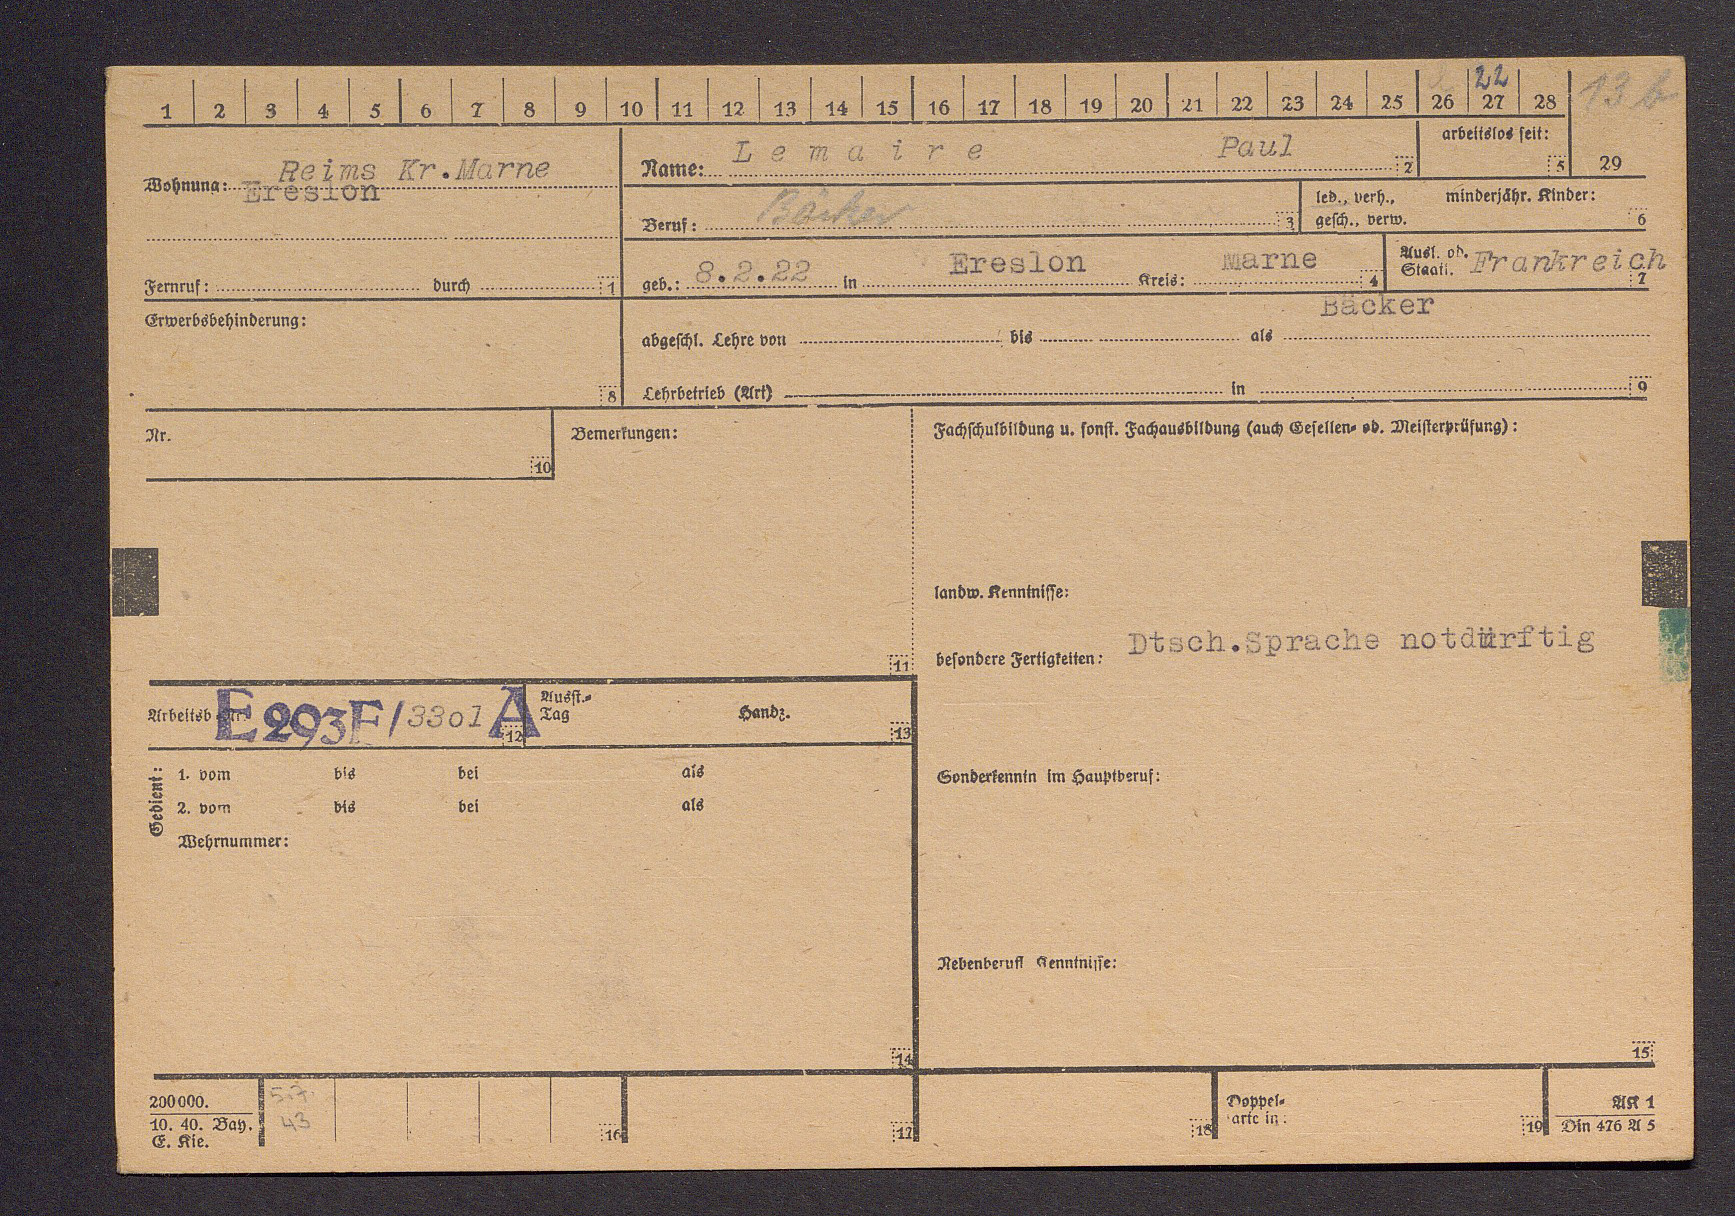 22 13 b
1 2 3 4 5 6 7 8 9 10 11 12 13 14 15 16 17 18 19 20 21 22 23 24 25 26 27 28
Wohnung: Reims Kr.Marne
Ereslon
Name: Lemaire Paul 2
arbeitslos seit: 5
29
Beruf: Bäcker 3
led., verh., gesch., verw.
minderjähr. Kinder: 6
Fernruf: durch 1
geb.: 8.2.22 in Ereslon Kreis: Marne 4
Ausl. od. Staatl. Frankreich 7
Erwerbsbehinderung: 8
Bäcker
abgeschl. Lehre von bis als
Lehrbetrieb (Art) in 9
Nr. 10
Bemerkungen: 11
Fachschulbildung u. sonst. Fachausbildung (auch Gesellen- od. Meisterprüfung):
landw. Kenntnisse:
besondere Fertigkeiten: Dtsch.Sprache notdürftig
Arbeitsb Nr E 293F/3301 A 12
Ausst.-Tag Handz. 13
Gedient:
1. vom bis bei als
2. vom bis bei als
Wehrnummer:
14
Sonderkenntn im Hauptberuf:
Nebenberufl Kenntnisse:
15
200000.
10. 40. Bay.
E. Kie.
5.7.
43
16
17
18
Doppel-
arte in:
19
AK 1
Din 476 A 5